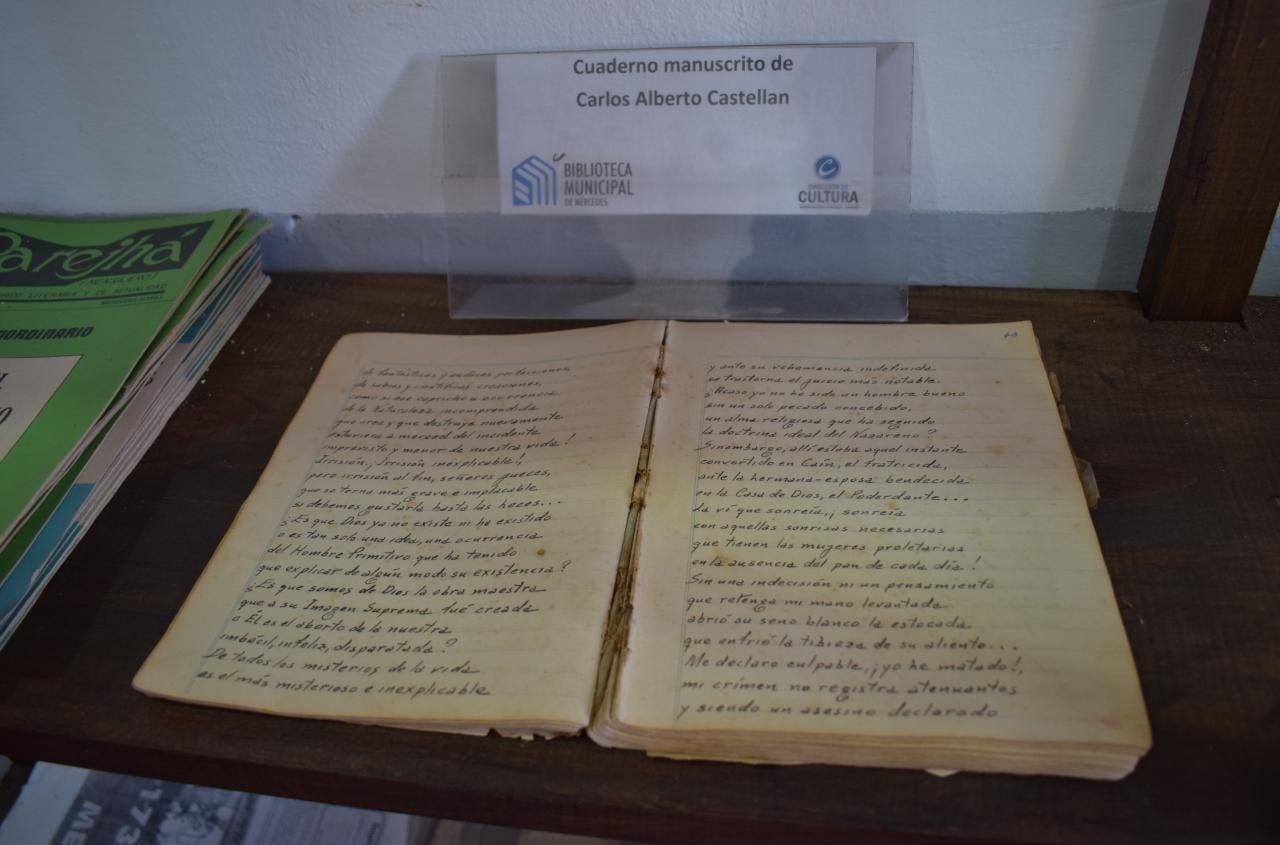 Cuaderno manuscrito de
Carlos Alberto Castellan
BIBLIOTECA
MUNICIPAL
DE MERCEDES
DIRECCIÓN DE
CULTURA
Parejhá
¡MENSAJERO!
LITERARIA Y DE ACTUALIDAD
ORDINARIO
de fantásticas y
de sabias y científicas creaciones,
como si ese capricho u ocurrencia
de la Naturaleza incomprendida
que crea y que destruye nuevamente
estuviera a merced del incidente
imprevisto y menor de nuestra vida!
Irrisión, ¡Irrisión inexplicable!,
pero irrisión al fin, señores jueces,
que se torna más grave e implacable
si debemos gustarla hasta las heces...
¿Es que Dios ya no existe ni ha existido
o es tan solo una idea, una ocurrencia
del Hombre Primitivo que ha tenido
que explicar de algún modo su existencia?
¿Es que somos de Dios la obra maestra
que a su Imagen Suprema fué creada
o Él es el aborto de la nuestra
imbécil, infeliz, disparatada?
De todos los misterios de la vida
es el más misterioso e inexplicable
60
y ante su vehemencia indefinida
se trastorna el juicio más notable.
¿Acaso yo no he sido un hombre bueno
sin un solo pecado concebido,
un alma religiosa que ha seguido
la doctrina ideal del Nazareno?
Sinembargo, allí estaba aquel instante
convertido en Caín, el fratricida,
ante la hermana-esposa bendecida
en la Casa de Dios, el Poderdante...
La vi que sonreía, ¡sonreía
con aquellas sonrisas necesarias
que tienen las mujeres proletarias
en la ausencia del pan de cada día!
Sin una indecisión ni un pensamiento
que retenga mi mano levantada
abrió su seno blanco la estocada
que enfrió la tibieza de su aliento...
Me declaro culpable, ¡yo he matado!,
mi crímen no registra atenuantes
y siendo un asesino declarado
173
ME